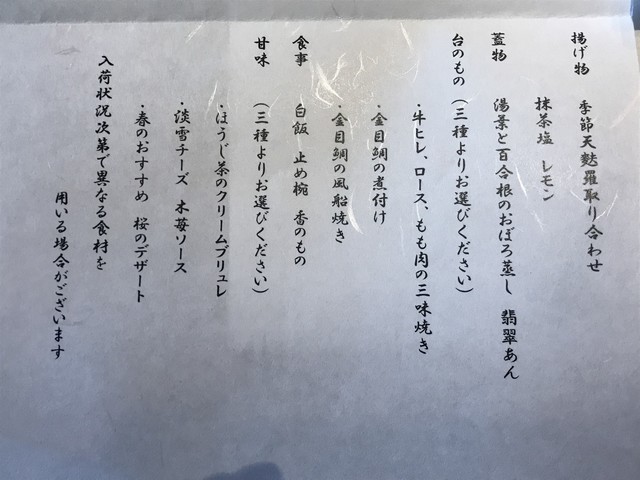 揚げ物　季節天麩羅取り合わせ
抹茶塩　レモン
蓋物　湯葉と百合根のおぼろ蒸し　翡翠あん
台のもの（三種よりお選びください）
・牛ヒレ、ロース、もも肉の三味焼き
・金目鯛の煮付け
・金目鯛の風船焼き
食事　白飯　止め椀　香のもの
甘味　（三種よりお選びください）
・ほうじ茶のクリームブリュレ
・淡雪チーズ　木苺ソース
・春のおすすめ　桜のデザート
入荷状況次第で異なる食材を
用いる場合がございます